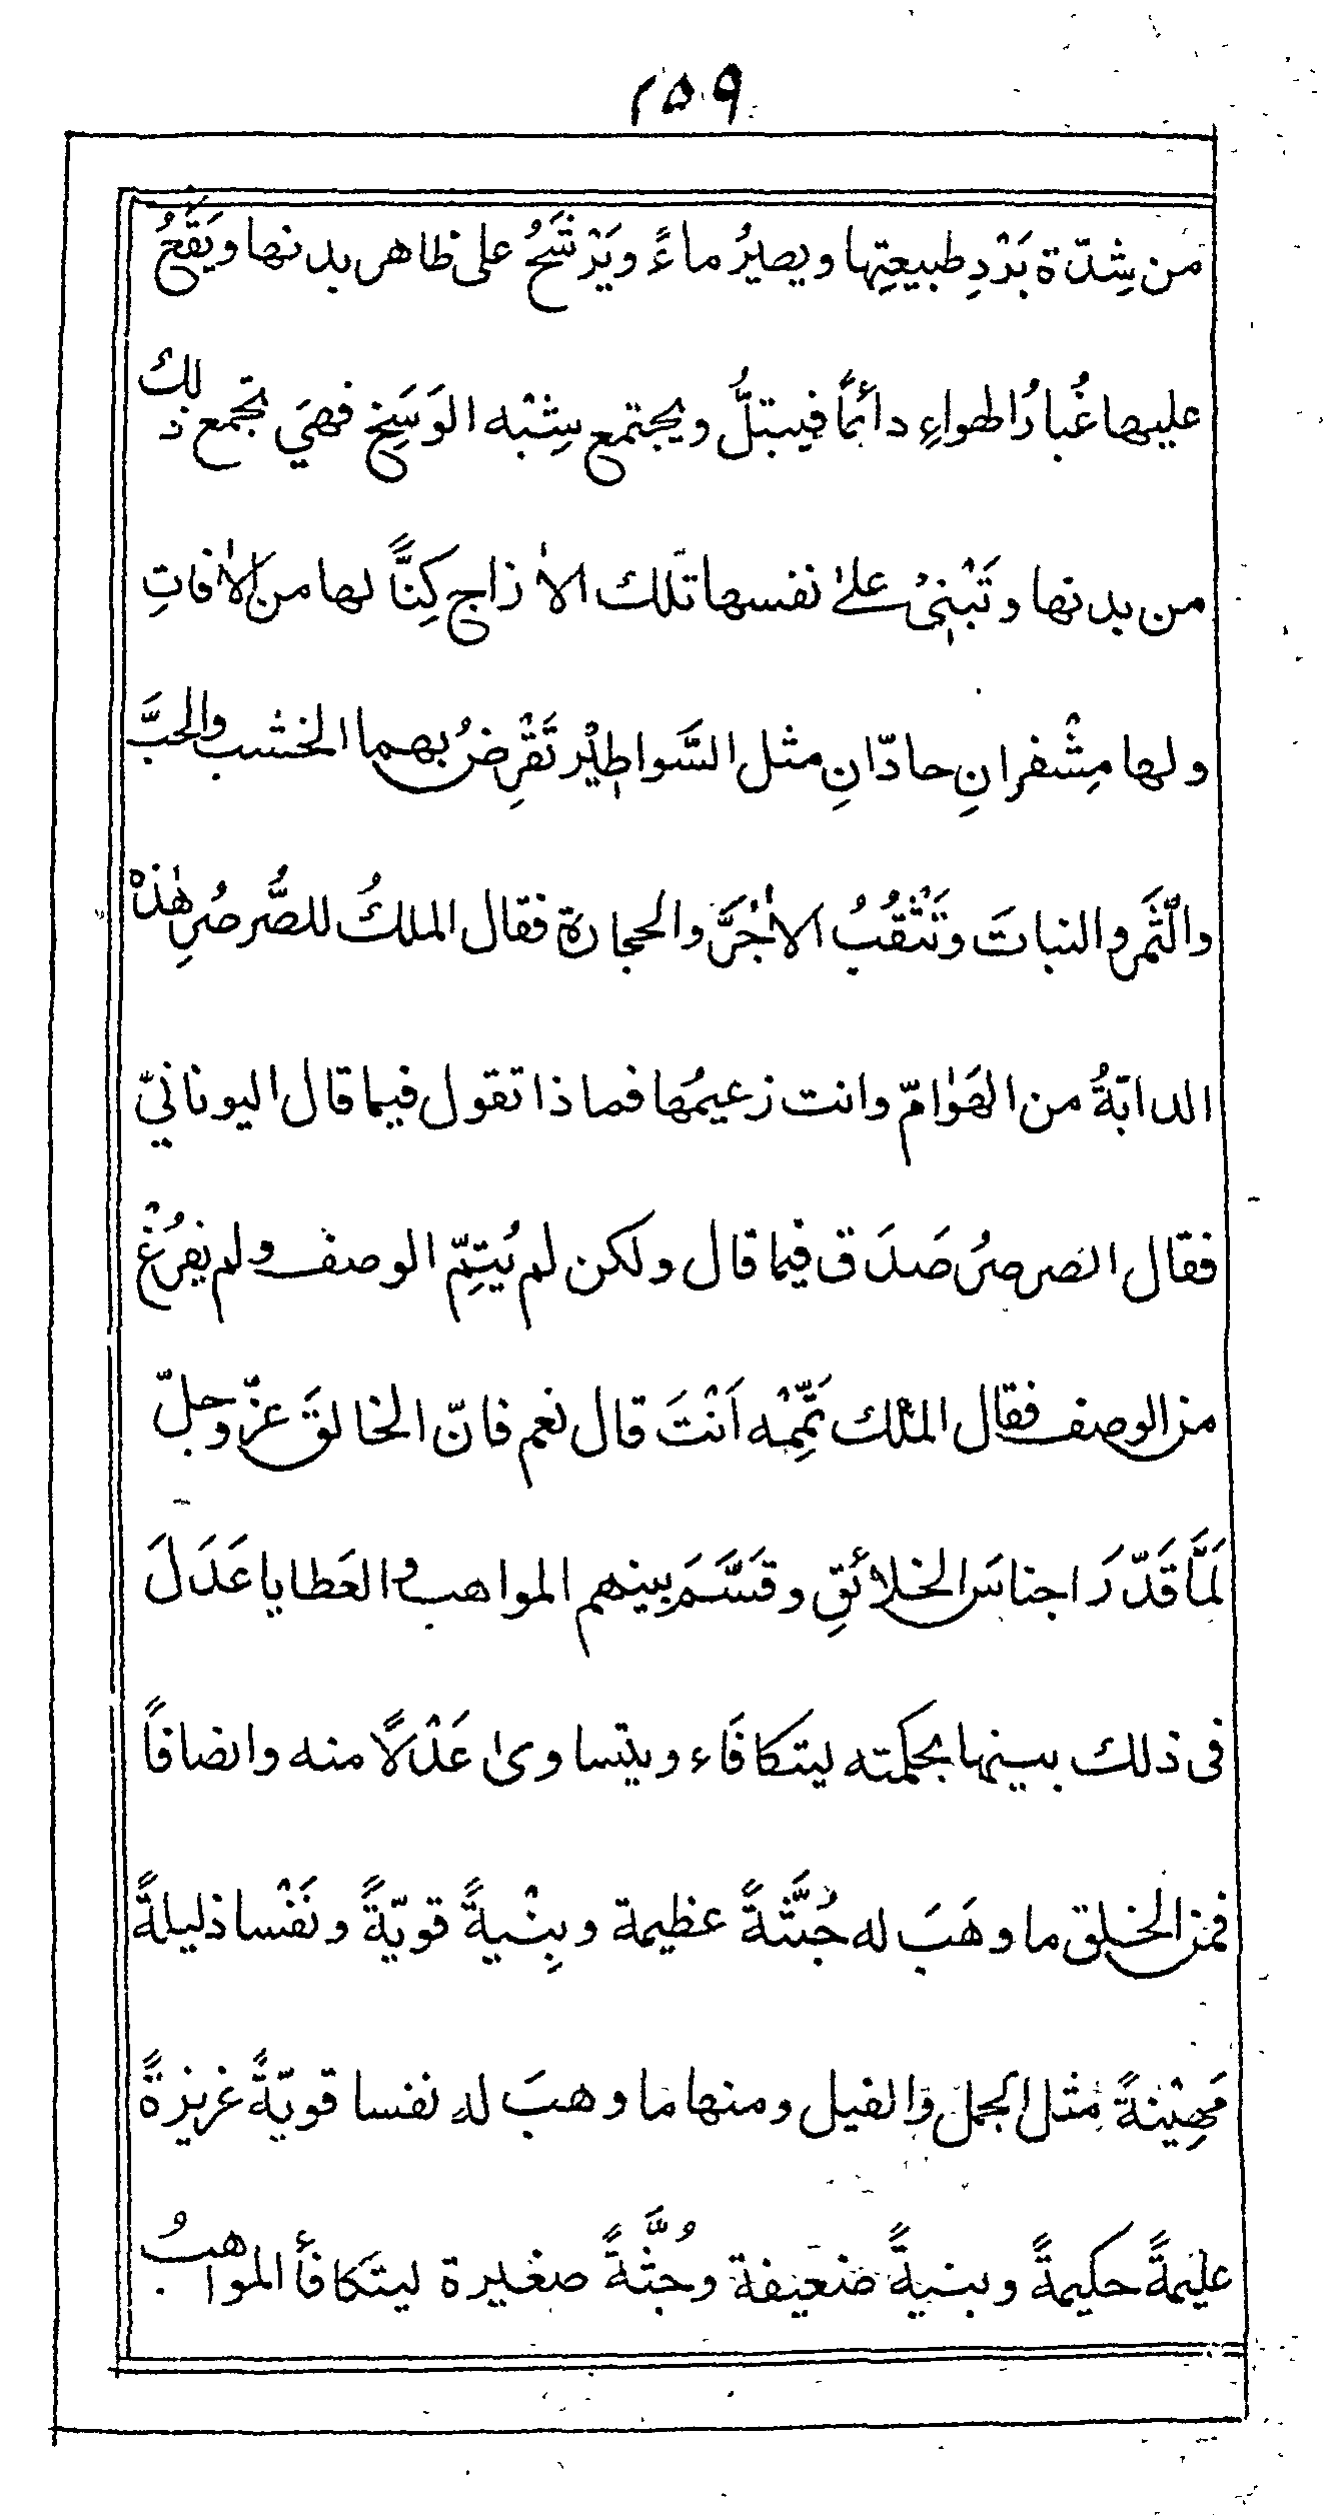 ٢٥٩
من شِدّة بَرْدِ طبيعتِها ويصيرُ ماءً ويَرْشَحُ على ظاهر بدنها ويَقَعُ
عليها غُبارُ الهواءِ دائماً فيبتلُّ ويجتمع شِبْه الوَسَخِ فهيَ تجمع ذلك
من بدنها وتَبْنِىْ علىٰ نفسها تلك الاٰزاج كِنًّا لها من الاٰفاتِ
ولها مِشْفرانِ حادّانِ مثل السَّواطِيْر تَقْرِضُ بهما الخشب والحَبَّ
والثَّمر والنباتَ وتَثْقُبُ الاٰجُرَّ والحجارة فقال الملكُ للصُّرصُرِ هٰذه
الدابّةُ من الهَوٰامّ وانت زعيمُها فماذا تقول فيما قال اليونانيّ
فقال الصرصرُ صَدَق فيما قال ولكن لم يُتِمّ الوصف ولم يفرُغْ
من الوصف فقال الملك تَمِّمْه اَنْتَ قال نعم فانّ الخالقَ عزّ وجلّ
لَمَّا قَدّرَ اجناسَ الخلائقِ وقَسَّمَ بينهم المواهب والعَطايا عَدَلَ
فى ذلك بينها بحكمته ليتكافَاء ويتساوىٰ عَدْلاً منه وانصافاً
فمن الخلق ما وهَبَ له جُثَّةً عظيمة وبِنْيةً قويّةً ونَفْسا ذليلةً
مَهِيْنةً مثل الجمل والفيل ومنها ما وهبَ له نفسا قويّةً غريزةً
عليمةً حكيمةً وبنيةً ضعيفة وجُثَّةً صغيرة ليتَكافأ المواهبُ